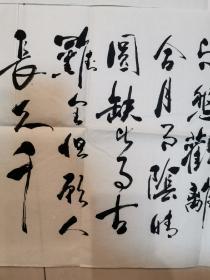 悲歡離
合月有陰晴
圓缺此事古
難全但願人
長久千